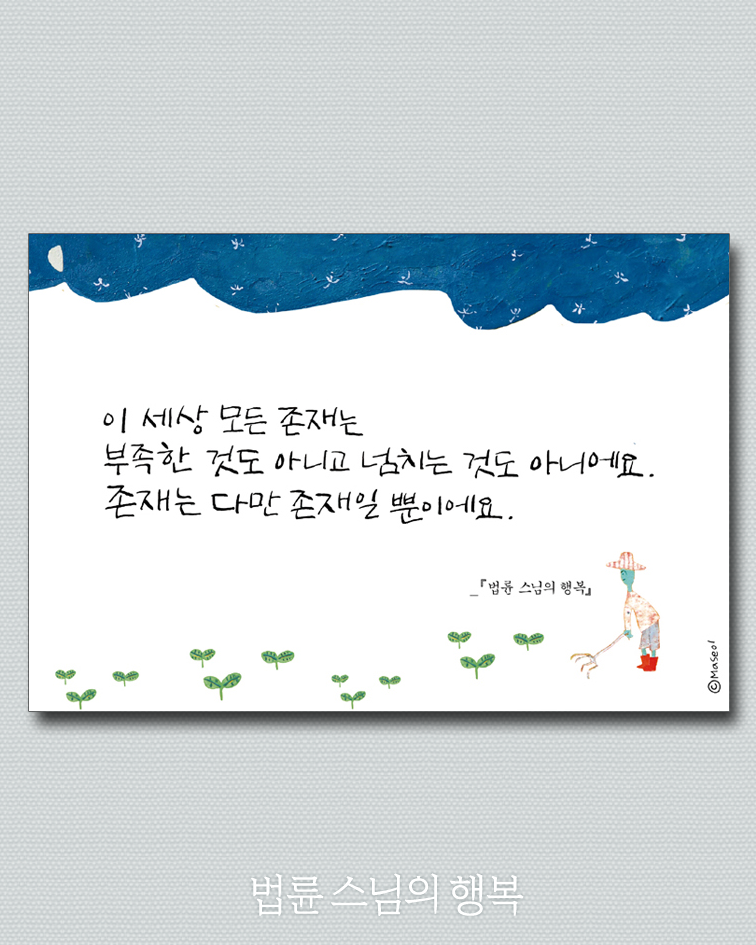 이 세상 모든 존재는
부족한 것도 아니고 넘치는 것도 아니에요.
존재는 다만 존재일 뿐이에요.
_『법륜 스님의 행복』
©Maseol
법륜 스님의 행복